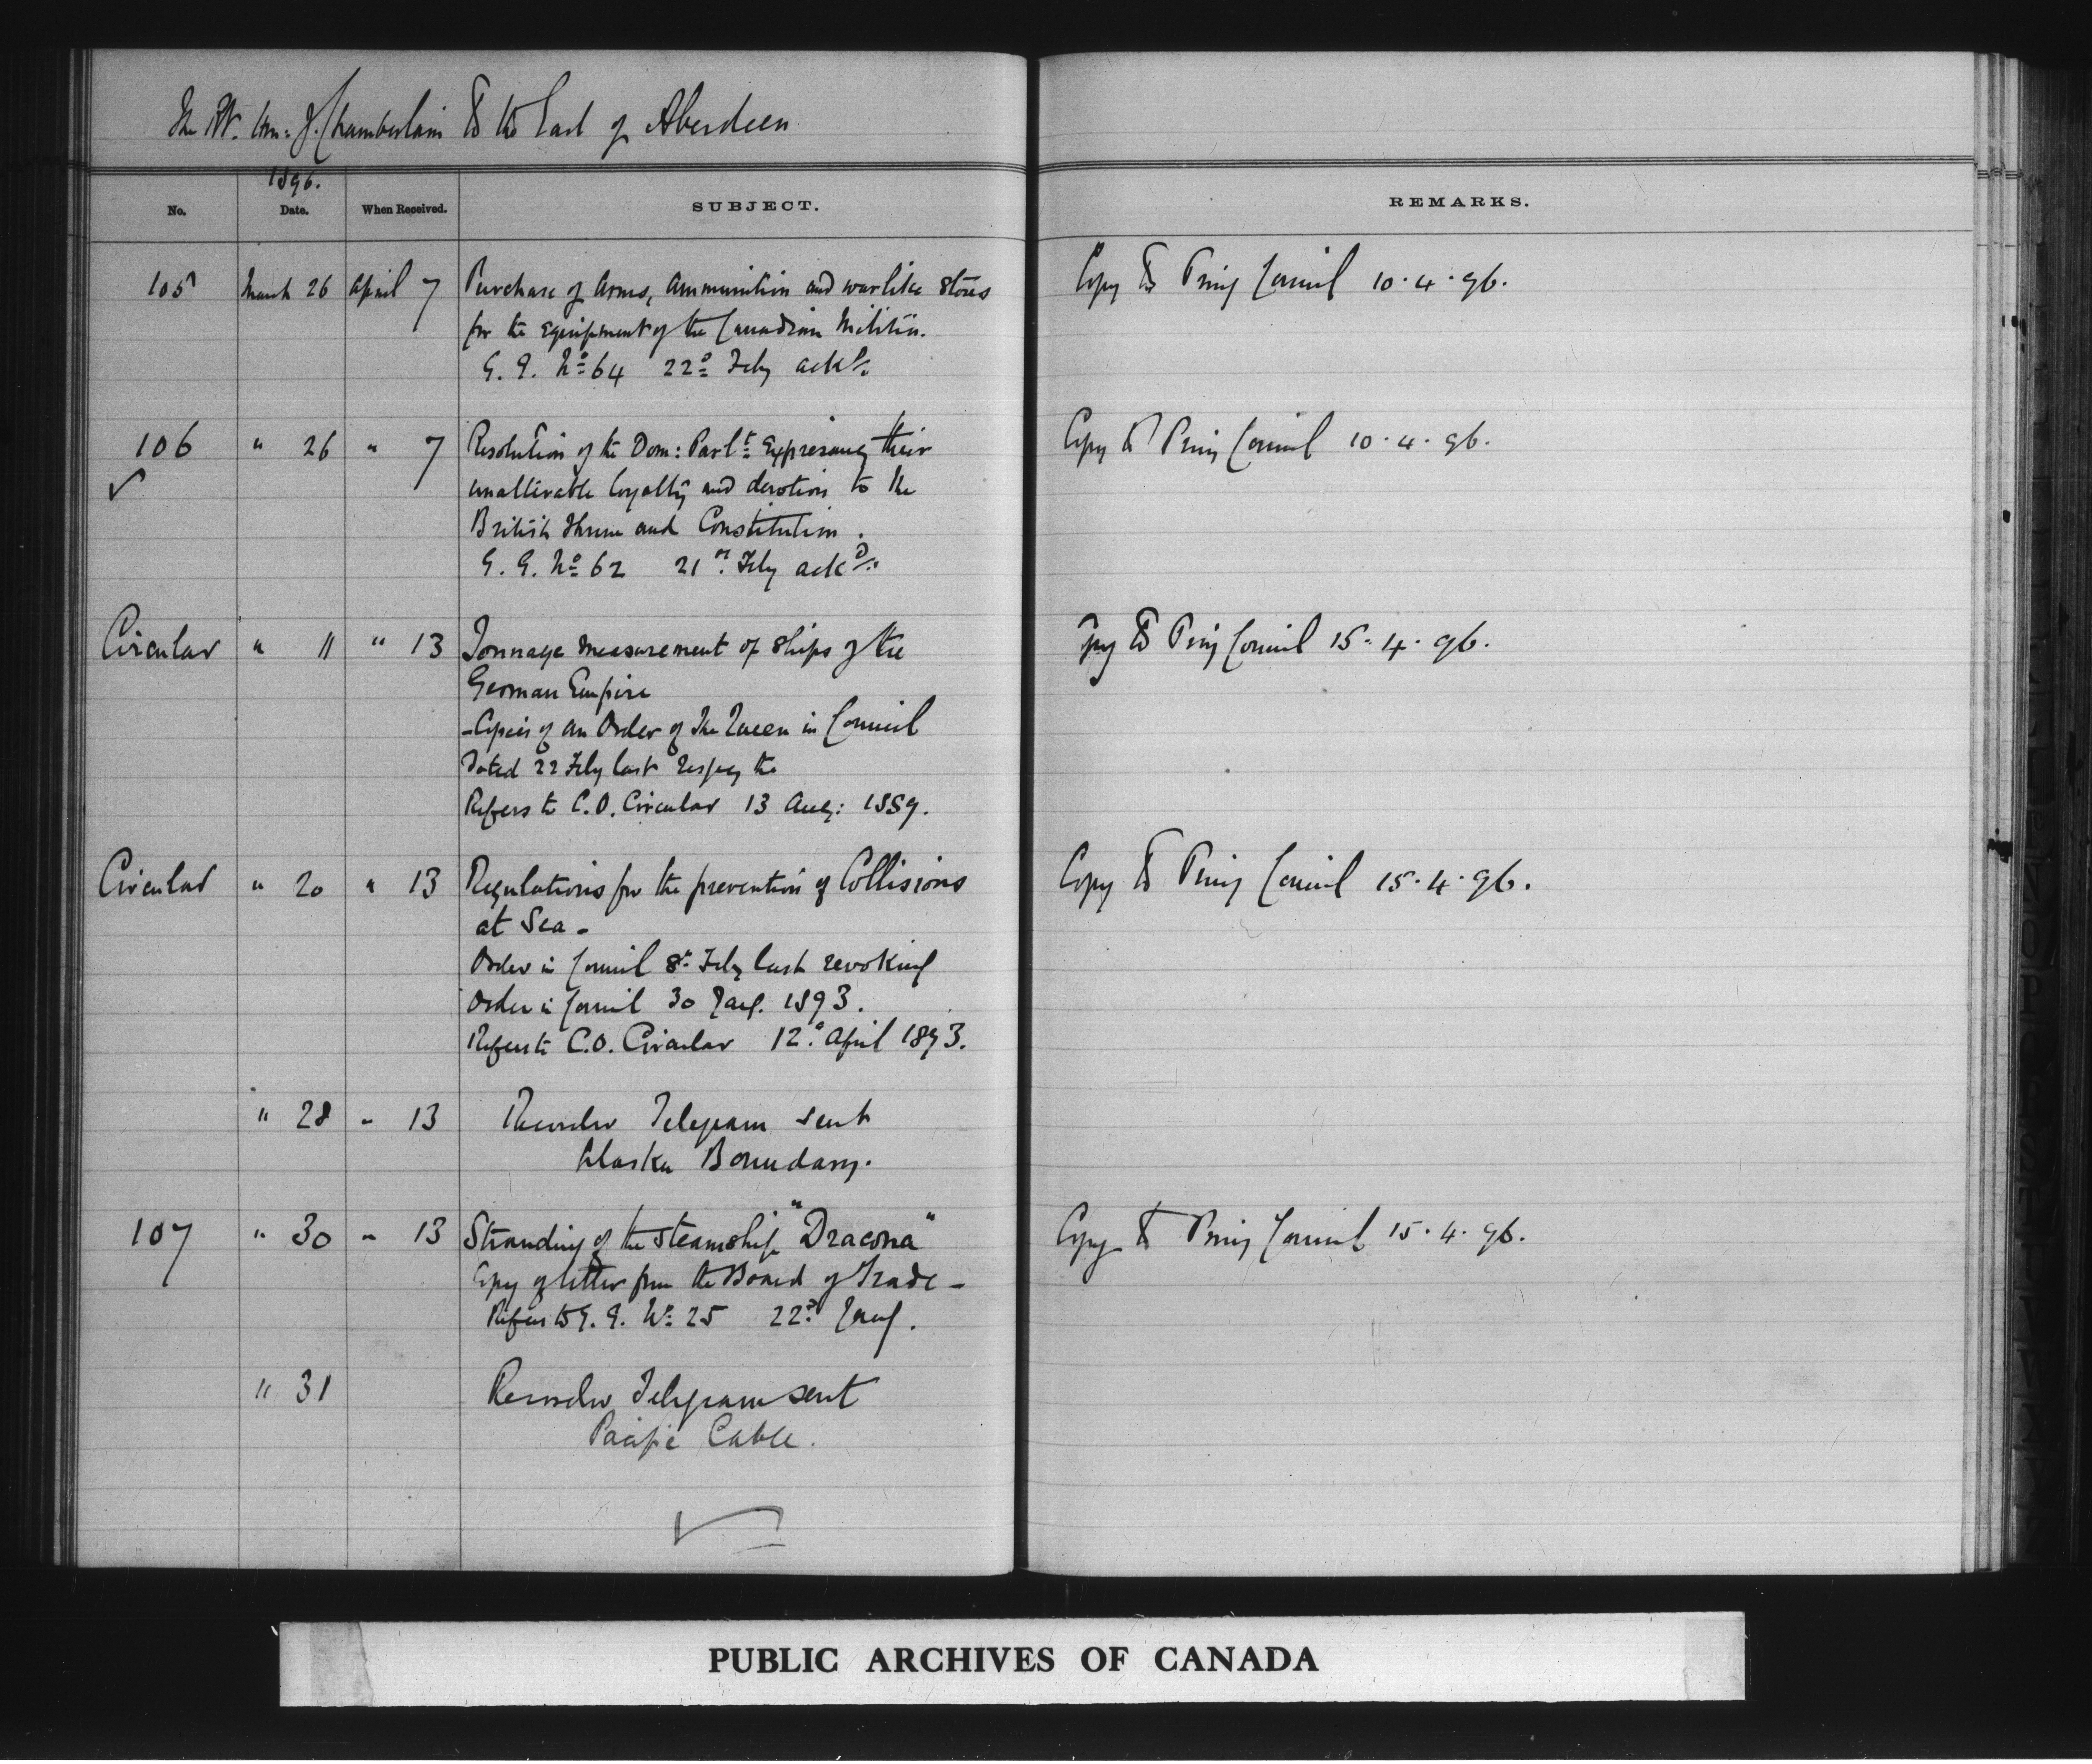 The Rt. Hon: J. Chamberlain to the Earl of Aberdeen
1896.
No. Date. When Received. SUBJECT. REMARKS.
105 March 26 April 7 Purchase of Arms, Ammunition and warlike Stores Copy to Privy Council 10.4.96.
for the equipment of the Canadian Militia.
G. G. No 64 22d Feby ackd.
106 " 26 " 7 Resolution of the Dom: Parlt: Expressing their Copy to Privy Council 10.4.96.
unalterable loyalty and devotion to the
British Throne and Constitution.
G. G. No 62 21st Feby ackd.
Circular " 11 " 13 Tonnage measurement of Ships of the Copy to Privy Council 15.4.96.
German Empire
- Copies of an Order of The Queen in Council
dated 22 Feby last respg the
Refers to C.O. Circular 13 Aug: 1889.
Circular " 20 " 13 Regulations for the prevention of Collisions Copy to Privy Council 15.4.96.
at Sea -
Order in Council 8th Feby last revoking
Order in Council 30 Jany. 1893.
Refers to C.O. Circular 12th April 1893.
" 28 " 13 Recorder Telegram sent
Alaska Boundary.
107 " 30 " 13 Stranding of the Steamship "Dracona" Copy to Privy Council 15.4.96.
Copy of letter from the Board of Trade -
Refers to G. G. No 25 22d Jany.
" 31 Recorder Telegram sent
Pacific Cable.
PUBLIC ARCHIVES OF CANADA